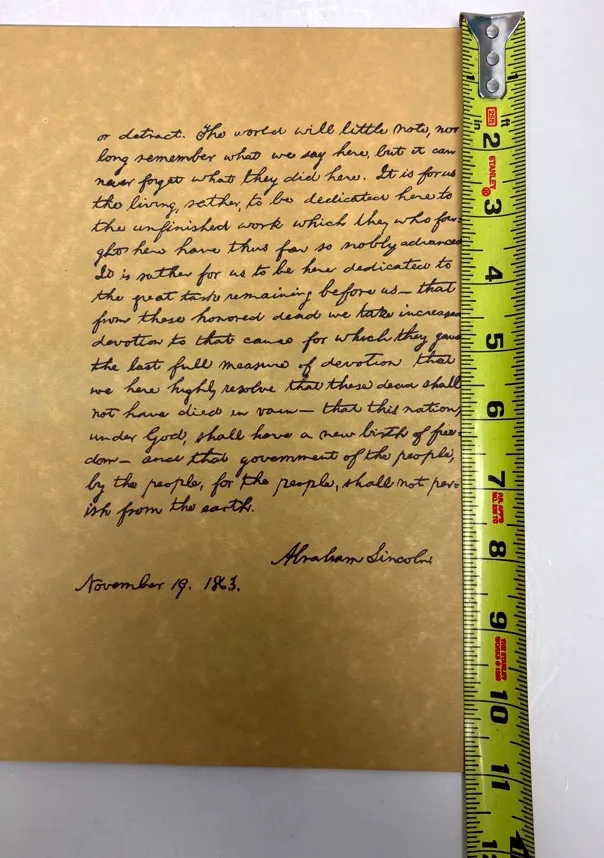 or detract. The world will little note, nor
long remember what we say here, but it can
never forget what they did here. It is for us
the living, rather, to be dedicated here to
the unfinished work which they who fou-
ght here have thus far so nobly advanced
It is rather for us to be here dedicated to
the great task remaining before us — that
from these honored dead we take increased
devotion to that cause for which they gave
the last full measure of devotion that
we here highly resolve that these dead shall
not have died in vain — that this nation,
under God, shall have a new birth of free-
dom — and that government of the people,
by the people, for the people, shall not per-
ish from the earth.
Abraham Lincoln.
November 19. 1863.
1
25ft
in
ft
2
STANLEY
3
4
5
6
7
8
9
THE STANLEY
WORKS
10
11